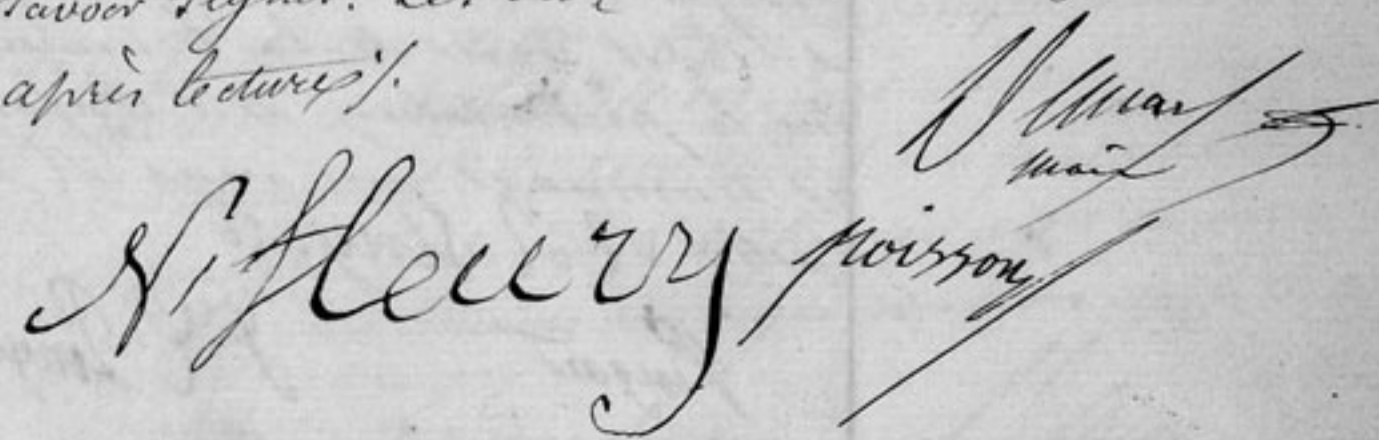 savoir signer. Les
après lecture ./.
maire
N. fleury poisson